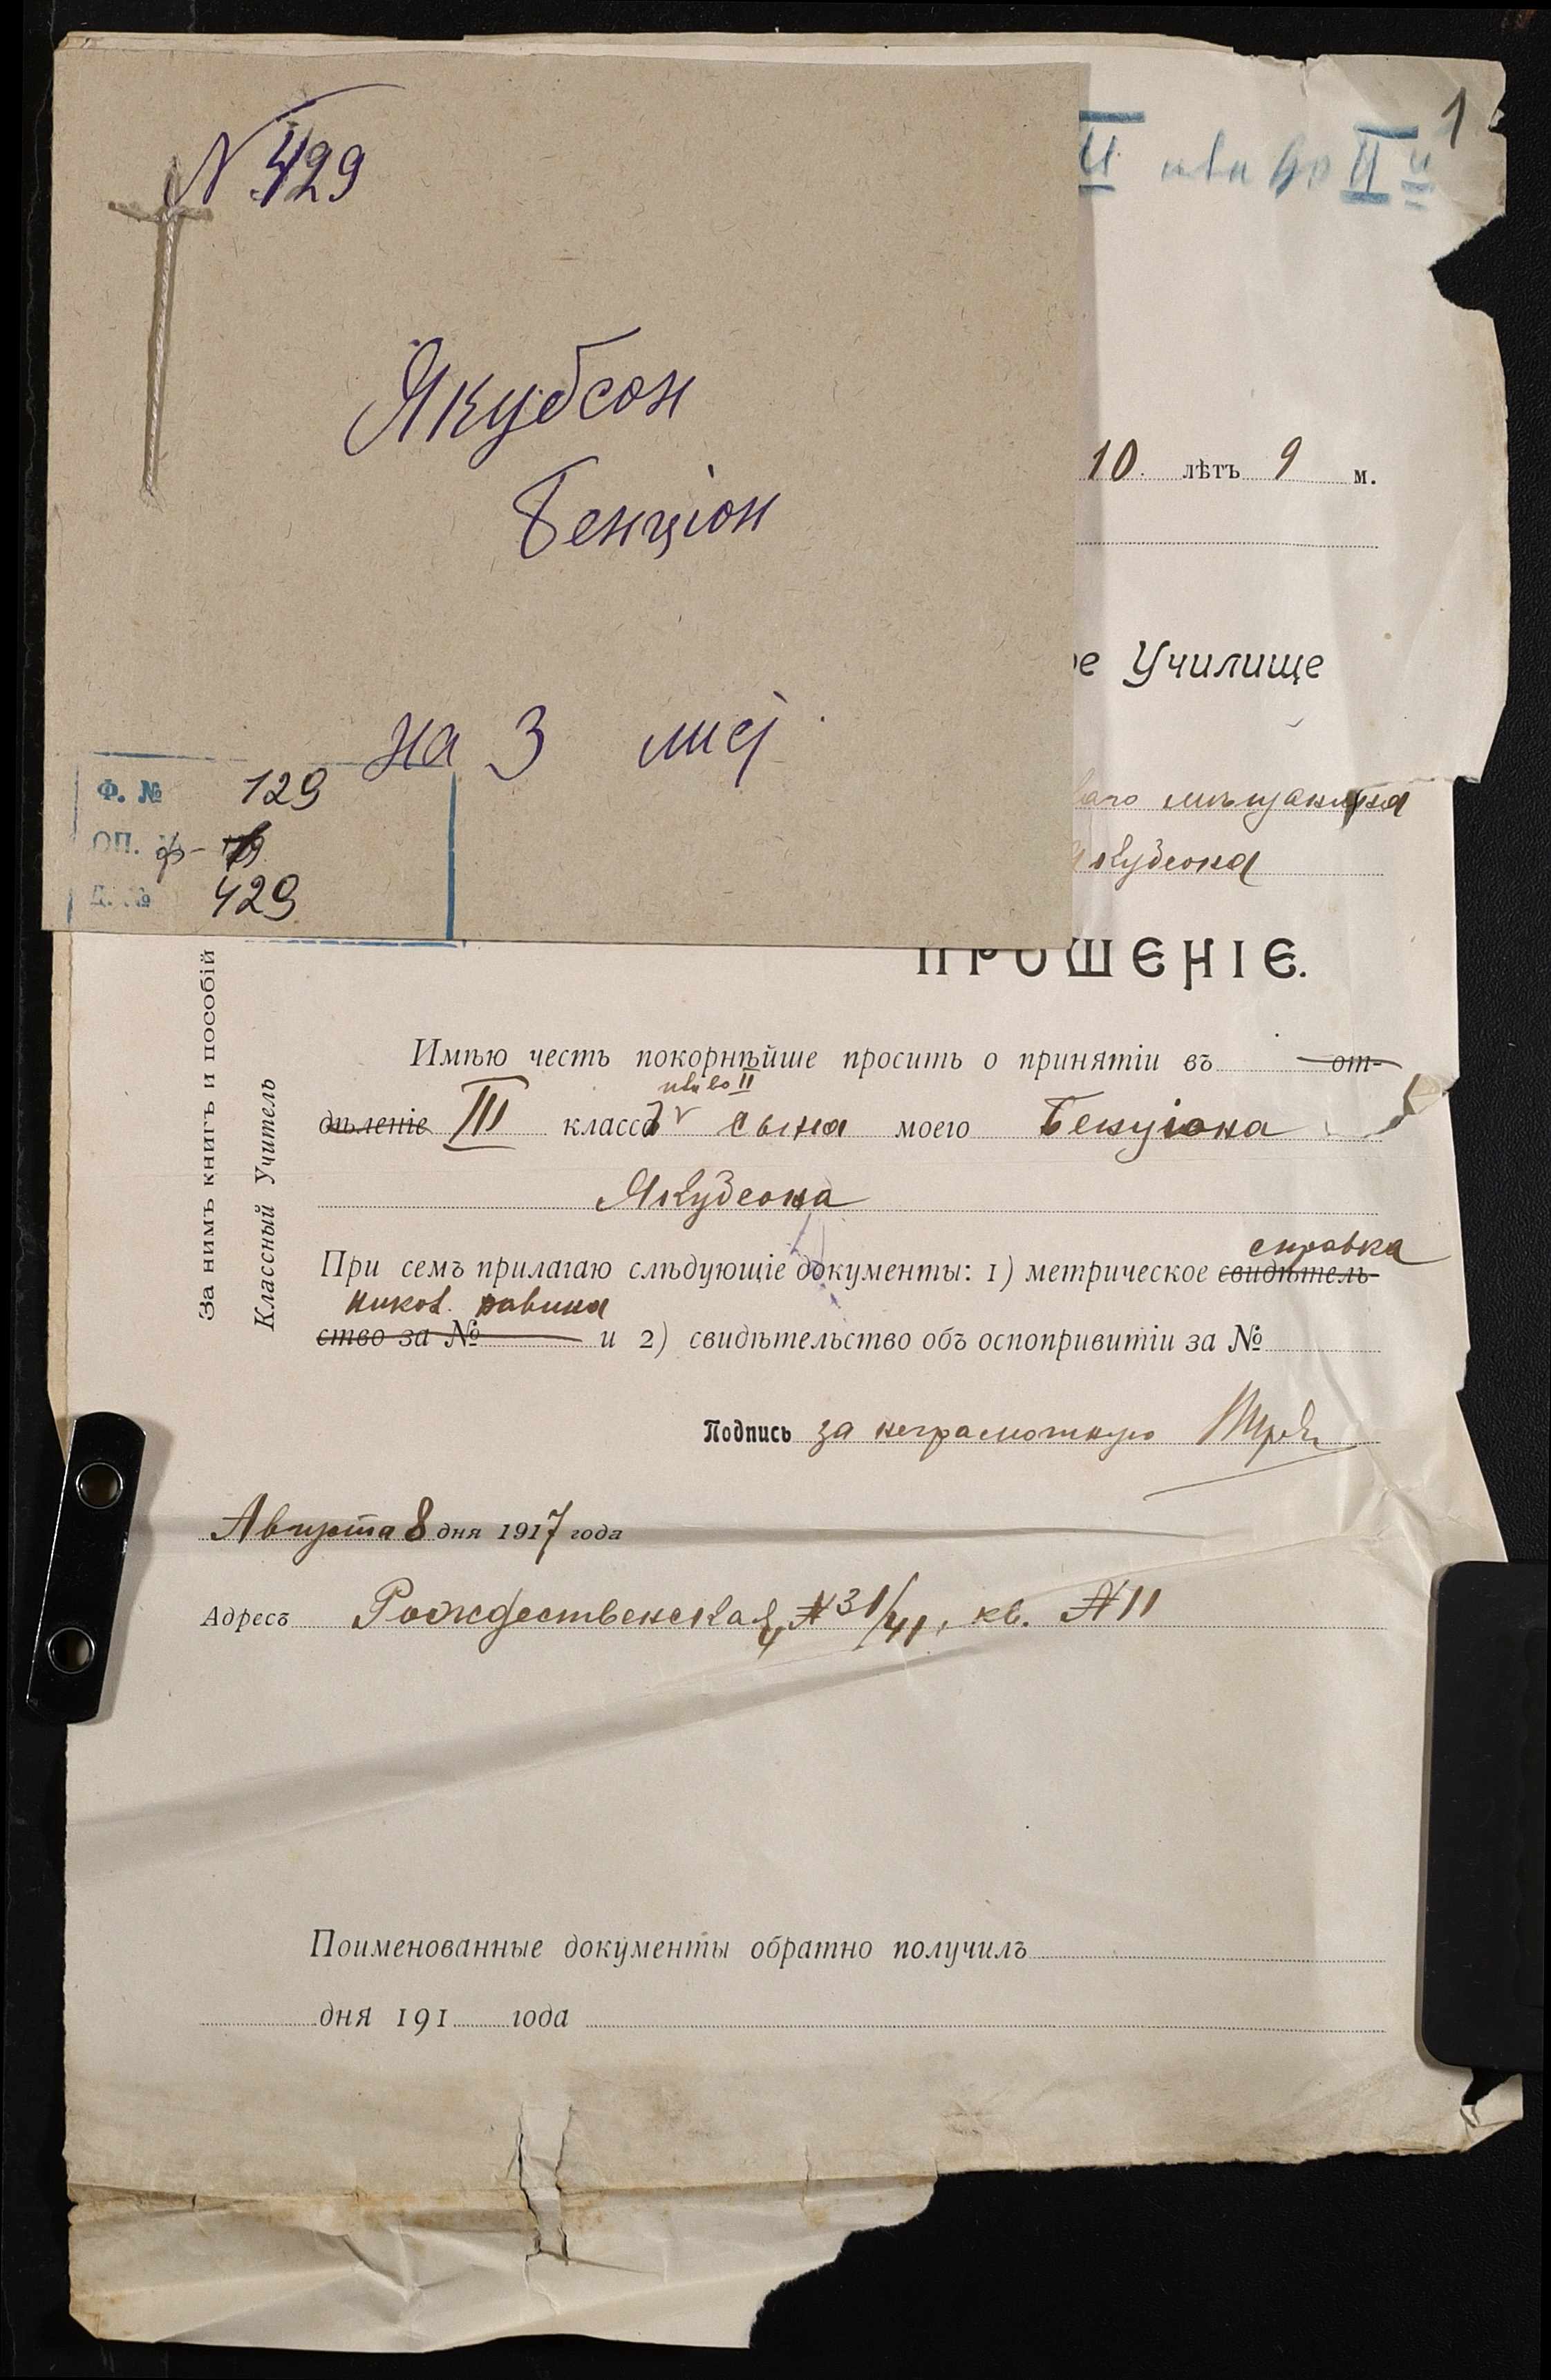 N 429
Якубсон
Бенціон
на 3 лис
Ф. № 129
ОП.
Д. № 429
1
II или во II
10 лѣтъ 9 м.
Училище
мѣщанина
Якубсона
ПРОШЕНІЕ.
За нимъ книгъ и пособій
Классный Учитель
Имѣю честь покорнѣйше просить о принятіи въ от-
или во II
дѣленіе III классъ сына моего Бенціона
Якубсона
При семъ прилагаю слѣдующіе документы: 1) метрическое свидѣтель-
справка
ство за № и 2) свидѣтельство объ оспопривитіи за №
раввина
Подпись за неграмотную
Августа 8 дня 1917 года
Адресъ Рождественская, № 31/41, кв. № 11
Поименованные документы обратно получилъ
дня 191 года